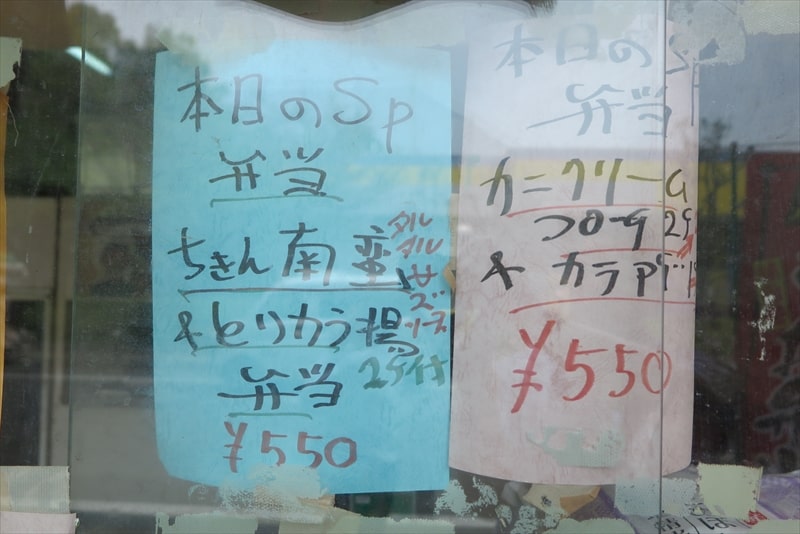 本日のSp
弁当
ちきん南蛮
タル
タル
&とりカラ揚
2ケ付
弁当
¥550
本日のSp
弁当
カニクリーム
コロッケ2ケ
& カラアゲ
¥550